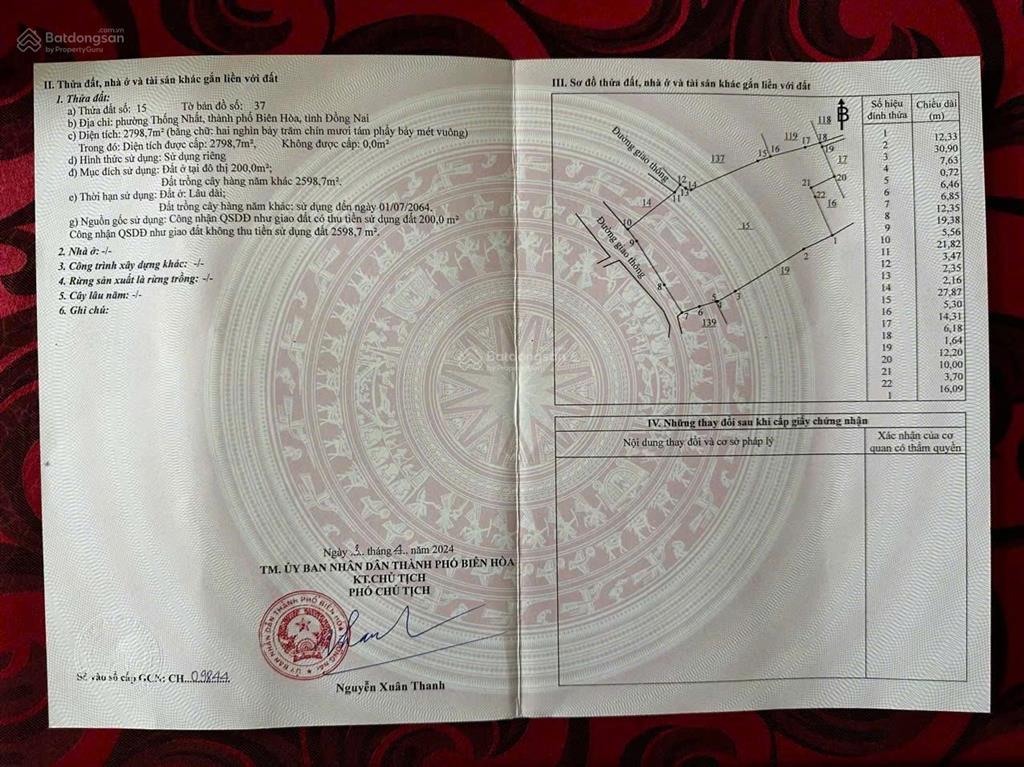 Batdongsan.com.vn
by PropertyGuru
II. Thửa đất, nhà ở và tài sản khác gắn liền với đất
1. Thửa đất:
a) Thửa đất số: 15 Tờ bản đồ số: 37
b) Địa chỉ: phường Thống Nhất, thành phố Biên Hòa, tỉnh Đồng Nai
c) Diện tích: 2798,7m² (bằng chữ: hai nghìn bảy trăm chín mươi tám phẩy bảy mét vuông)
Trong đó: Diện tích được cấp: 2798,7m², Không được cấp: 0,0m²
d) Hình thức sử dụng: Sử dụng riêng
đ) Mục đích sử dụng: Đất ở tại đô thị 200,0m²;
Đất trồng cây hàng năm khác 2598,7m².
e) Thời hạn sử dụng: Đất ở: Lâu dài;
Đất trồng cây hàng năm khác: sử dụng đến ngày 01/07/2064.
g) Nguồn gốc sử dụng: Công nhận QSDĐ như giao đất có thu tiền sử dụng đất 200,0 m²
Công nhận QSDĐ như giao đất không thu tiền sử dụng đất 2598,7 m².
2. Nhà ở: -/-
3. Công trình xây dựng khác: -/-
4. Rừng sản xuất là rừng trồng: -/-
5. Cây lâu năm: -/-
6. Ghi chú:
Ngày 3 tháng 4 năm 2024
TM. ỦY BAN NHÂN DÂN THÀNH PHỐ BIÊN HÒA
KT.CHỦ TỊCH
PHÓ CHỦ TỊCH
Nguyễn Xuân Thanh
Số vào sổ cấp GCN: CH 09844
III. Sơ đồ thửa đất, nhà ở và tài sản khác gắn liền với đất
B
118
119
137
Đường giao thông
Đường giao thông
14
15
16
17
19
139
1
2
3
4
5
6
7
8
9
10
11
12
13
14
15
16
17
18
19
20
21
22
Số hiệu đỉnh thửa
Chiều dài (m)
1
12,33
2
30,90
3
7,63
4
0,72
5
6,46
6
6,85
7
12,35
8
19,38
9
5,56
10
21,82
11
3,47
12
2,35
13
2,16
14
27,87
15
5,30
16
14,31
17
6,18
18
1,64
19
12,20
20
10,00
21
3,70
22
16,09
1
IV. Những thay đổi sau khi cấp giấy chứng nhận
Nội dung thay đổi và cơ sở pháp lý
Xác nhận của cơ
quan có thẩm quyền
Batdongsan
by PropertyGuru